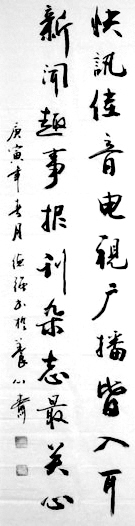 快訊佳音电视广播皆入耳
新闻趣事报刊杂志最关心
庚寅年春月 於養心齋